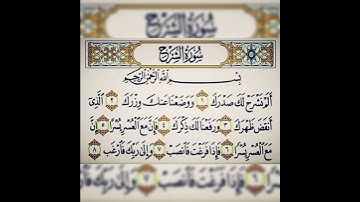 سُورَةُ الشَّرْحِ
سُورَةُ الشَّرْحِ
بِسْمِ اللَّهِ الرَّحْمَٰنِ الرَّحِيمِ
أَلَمْ نَشْرَحْ لَكَ صَدْرَكَ ١ وَوَضَعْنَا عَنكَ وِزْرَكَ ٢ الَّذِي
أَنقَضَ ظَهْرَكَ ٣ وَرَفَعْنَا لَكَ ذِكْرَكَ ٤ فَإِنَّ مَعَ الْعُسْرِ يُسْرًا ٥ إِنَّ
مَعَ الْعُسْرِ يُسْرًا ٦ فَإِذَا فَرَغْتَ فَانصَبْ ٧ وَإِلَىٰ رَبِّكَ فَارْغَب ٨
٦ فَإِذَا فَرَغْتَ فَانصَبْ ٧ وَإِلَىٰ رَبِّكَ